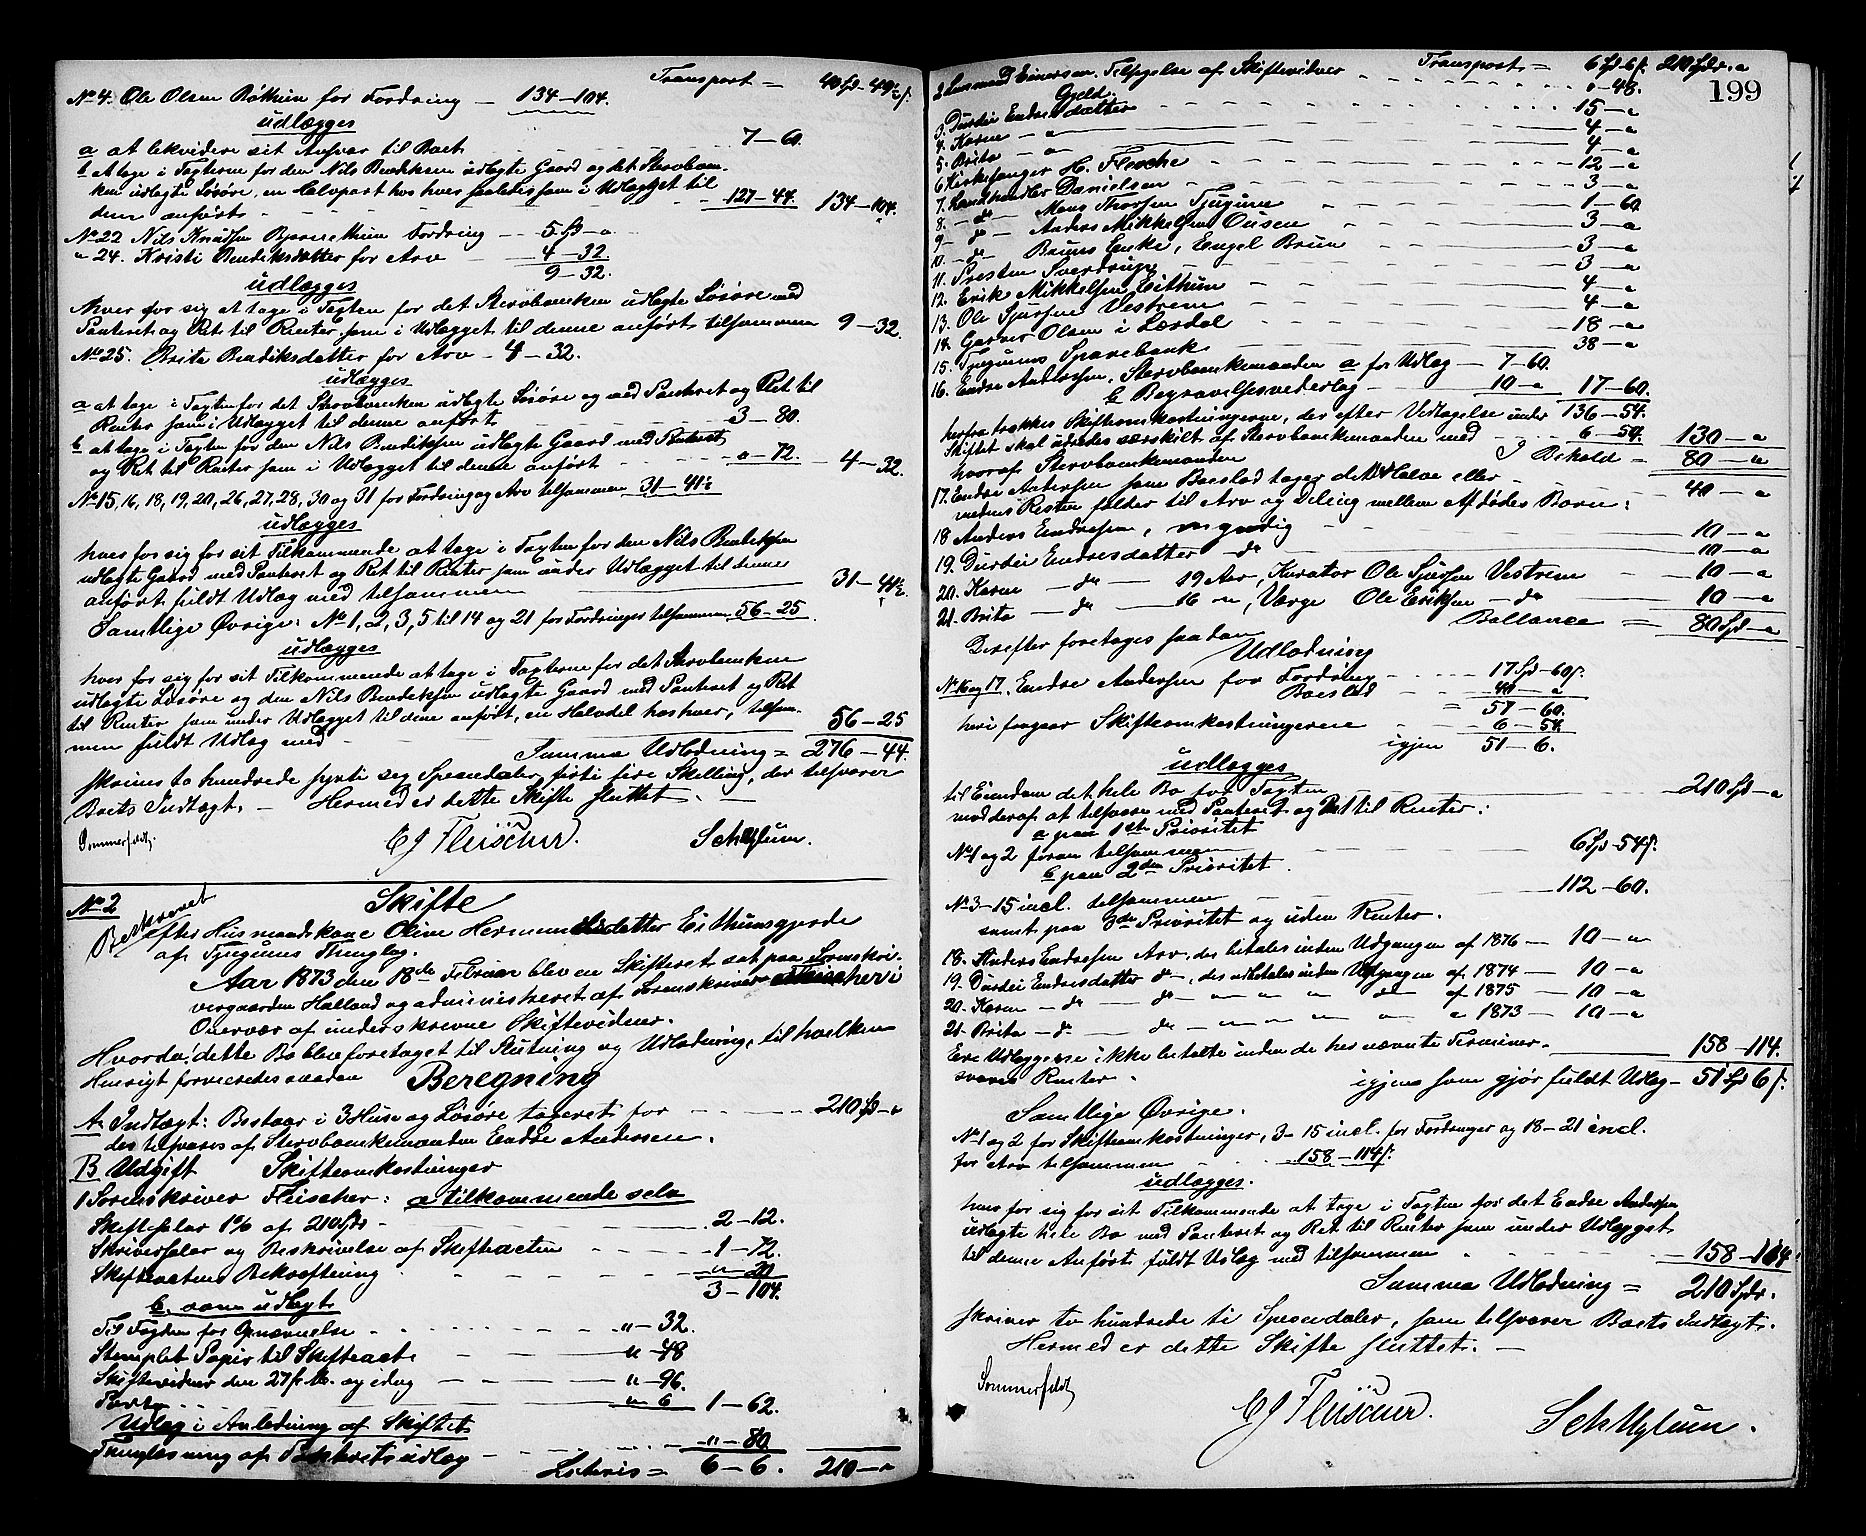 Transport = 40 Sp - 49½ s.
No 4. Ole Olsen Bøthun for Fordring — 134-104.
udlægges
a at likvidere sit Ansvar til Boet 7-60.
b at tage i Taxten for den Nils Bendiksen udlagte Gaard og det Stervboenken
ken udlagte Løsøre, en Halvpart hos hver saaledes som i Udlægget til
dem anført - - - 127-44. 134-104.
No 22 Nils Knudsen Fordring — 5 Sp - "
" 24. Kristi Bendiksdatter for Arv — 4-32
9-32.
udlægges
hver for sig at tage i Taxten for det Stervboenken udlagte Løsøre med
Panteret og Ret til Renter som i Udlægget til denne anført tilsammen 9-32.
No 25. Brita Bendiksdatter for Arv - 4-32.
udlægges
a at tage i Taxten for det Stervboenken udlagte Løsøre og med Panteret og Ret til
Renter som i Udlægget til denne anført 3-80.
b at tage i Taxten for den Nils Bendiksen udlagte Gaard med Panteret
og Ret til Renter som i Udlægget til denne anført " - 72. 4-32.
No 15, 16, 18, 19, 20, 26, 27, 28, 30 og 31 for Fordring og Arv tilsammen 31-41½
udlægges
hver for sig for sit Tilkommende at tage i Taxten for den Nils Bendiksen
udlagte Gaard med Panteret og Ret til Renter som under Udlægget til denne
anført fuldt Udlæg med tilsammen 31-41½.
Samtlige Øvrige: No 1, 2, 3, 5 til 14 og 21 for Fordringer tilsammen 56-25
udlægges
hver for sig for sit Tilkommende at tage i Taxterne for det Stervboenken
udlagte Løsøre og den Nils Bendiksen udlagte Gaard med Panteret og Ret
til Renter som under Udlægget til dem anført, en Halvdel hos hver, tilsam-
men fuldt Udlæg med — 56-25
Summa Udlodning = 276-44.
skrives to hundrede sytti sex Speciedaler, firti fire Skilling, der tilsvarer
Boets Indtægt. — Hermed er dette Skifte sluttet. —
Sommerfeldt. CJ Fleischer. SchUglum.
No 2 Skifte
Beskrevet
efter Husmandskone Oline Hermundsdatter Eithunsgjerde
af Tjugums Thinglag.
Aar 1873 den 18de Februar blev en Skifteret sat paa Sorenskri-
vergaarden Halland og administreret af Sorenskriver Fleischer i
Overvær af underskrevne Skiftevidner.
Hvorda dette Bo blev foretaget til Slutning og Udlodning, til hvilken
Hensigt forfærdedes saadan Beregning
A. Indtægt: Bestaar i 3 Huse og Løsøre taxeret for - - - 210 Sp - "
der tilsvares af Stervboenkemanden Endre Andersen.
B Udgift Skifteomkostninger
1 Sorenskriver Fleischer: a tilkommende selv
Skiftesalær 1% af 210 Spd - 2-12.
Skriversalær og Beskrivelse af Skifteacten - - - 1-72.
Skifteactens Bekræftning - - - " - 20
3-104.
b. som udlagt
Til Taxten for Opnævnelse - - - " - 32.
Stemplet Papir til Skifteact - - - " - 48
Skiftevidner den 27 f. M. og idag - - - " - 96.
Porto - - - " 6 1-62.
Udlæg i Anledning af Skiftet
Thinglæsning af Panteretsudlæg - - - " - 80
Lateris = 6-6. 210 - "
199
Transport = 6 Sp - 6 s. 210 Spd. "
2 Einersen. Tilsigelse af Skiftevidner - - - " - 48.
Gjeld.
3. Durdei Endresdatter - - - 15 - "
4. Karen - " - - - 4 - "
5. Brita - " - - - 4 - "
6 Kirkesanger H. Flesche - - - 12 - "
7. Landhandler Danielsen - - - 3 - "
8. - do - Mons Thorsen Tjugum - - - 1-60.
9 - do - Anders Mikkelsen Ousen - - - 3 - "
10. - do - Bruns Enke, Engel Brun - - - 3 - "
11. Presten Sverdrup - - - 3 - "
12. Erik Mikkelsen Eithun - - - 4 - "
13. Ole Sjursen Vestrem - - - 4 - "
14. Garver Olsen i Lærdal - - - 18 - "
15. Tjugums Sparebank - - - 38 - "
16. Endre Andersen, Stervboenkemanden a for Udlæg - 7-60.
b Begravelsesvederlag - 10 - " 17-60.
136-54.
herfra trækkes Skifteomkostningerne, der efter Vedtagelse under
Skiftet skal udredes særskilt af Stervboenkemanden med - 6-54. 130 - "
I Behold = 80 - "
hvoraf Stervboenkemanden
17. Endre Andersen som Boeslod tager det Halve eller - - - 40 - "
medens Resten falder til Arv og Deling mellem Afdødes Børn:
18 Anders Endresen, myndig - - - 10 - "
19. Durdei Endresdatter - do - - - 10 - "
20. Karen - do - 19 Aar, Kurator Ole Sjursen Vestrem - - 10 - "
21. Brita - do - 16 - ", Værge Ole Eriksen - do - 10 - "
Ballance = 80 Spd - "
Derefter foretages saadan
Udlodning
No 16 og 17. Endre Andersen for Fordring - - - 17 Sp - 60 s.
Boeslod - - - 40 - "
= 57-60.
heri fragaar Skifteomkostningerne - - 6-54.
igjen 51-6.
udlægges
til Eiendom det hele Bo for Taxten - - - 210 Sp - "
mod deraf at tilsvare med Panteret og Ret til Renter:
a paa 1ste Prioritet
No 1 og 2 foran tilsammen - - - 6 Sp - 54 s.
b paa 2den Prioritet
No 3-15 incl. tilsammen - - - 112-60.
samt paa 3de Prioritet og uden Renter.
18. Anders Endresen Arv, der betales inden Udgangen af 1876 - 10 - "
19. Durdei Endresdatter do -, der udbetales inden Udgangen af 1874 - 10 - "
20. Karen - do - do - " - " " do af 1875 - 10 - "
21. Brita - do - do - " - " - " - " " 1873 - 10 - "
Ere Udlæggene ikke betalte inden de her nævnte Terminer - - - 158-114.
svares Renter. igjen som gjør fuldt Udlæg - 51 Sp 6 s.
Samtlige Øvrige.
No 1 og 2 for Skifteomkostninger, 3-15 incl. for Fordringer og 18-21 incl.
for Arv tilsammen - - - 158-114 s.
udlægges.
hver for sig for sit Tilkommende at tage i Taxten for det Endre Andersen
udlagte hele Bo med Panteret og Ret til Renter som under Udlægget
til denne Anført fuldt Udlæg med tilsammen - - - 158-114.
Summa Udlodning = 210 Spdr.
skriver to hundrede ti Speciedaler, som tilsvarer Boets Indtægt.
Hermed er dette Skifte sluttet. —
Sommerfeldt CJ Fleischer. SchUglum.